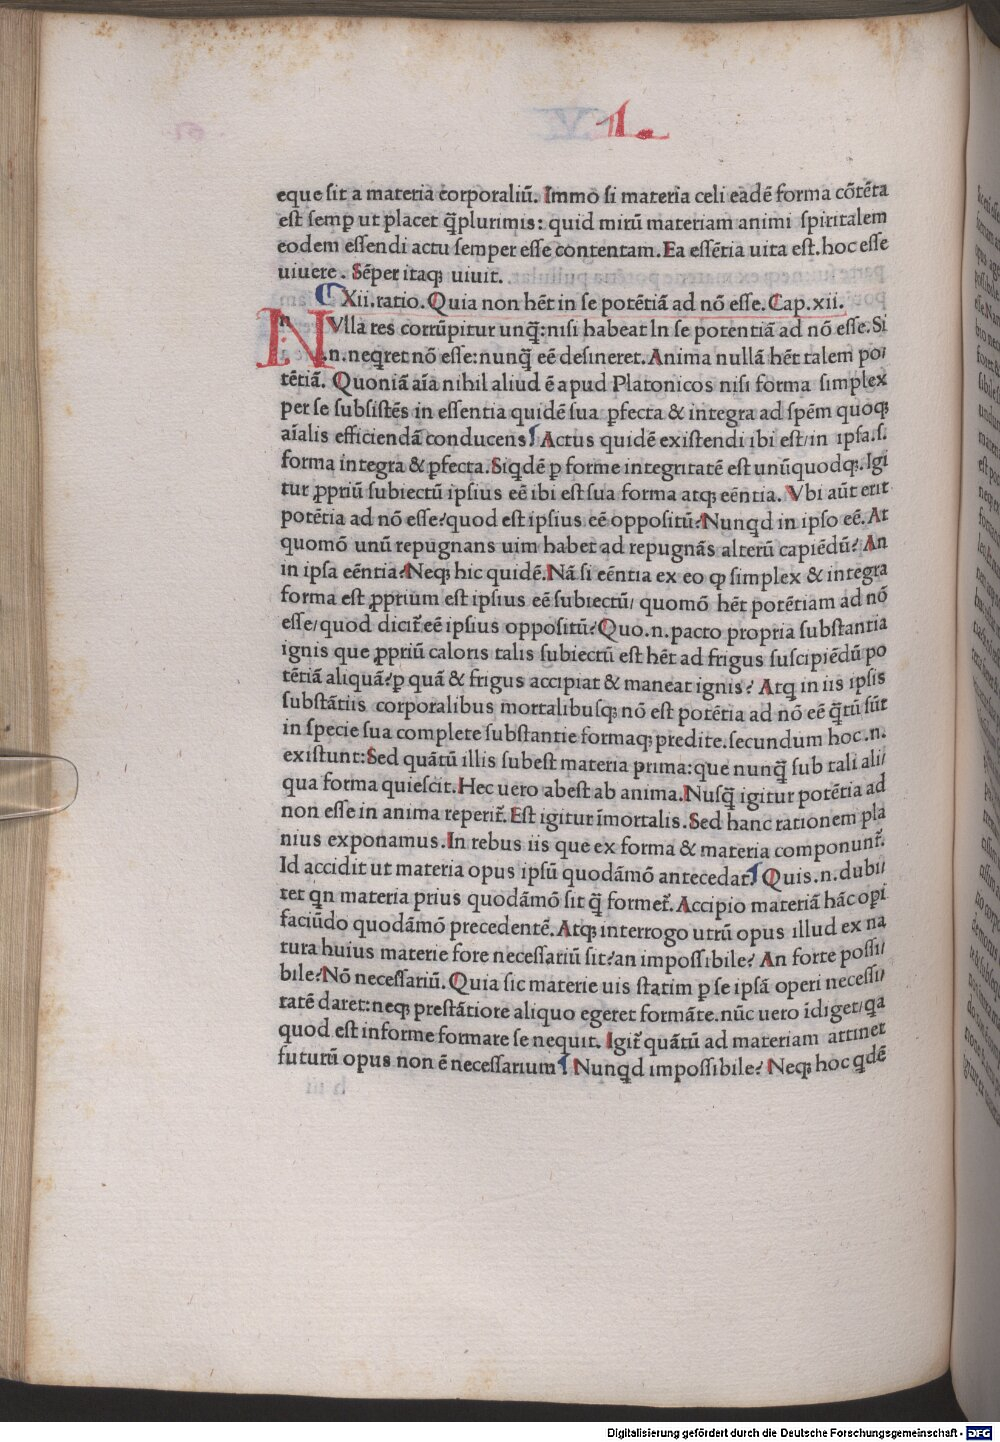 L
eque sit a materia corporaliū. Immo si materia celi eadē forma cōtēta
est semꝑ ut placet q̄plurimis: quid mirū materiam animi spiritalem
eodem essendi actu semper esse contentam. Ea essētia uita est. hoc esse
uiuere. Sēper itaqꝫ uiuit.
Xii. ratio. Quia non hēt in se potētiā ad nō esse. Cap. xii.
NVlla res corrūpitur unq̄: nisi habeat ln se potentiā ad nō esse. Si
.n. neqret nō esse: nunq̄ eē desineret. Anima nullā hēt talem po/
tētiā. Quoniā aīa nihil aliud ē apud Platonicos nisi forma simplex
per se subsistēs in essentia quidē sua ꝑfecta & integra ad spēm quoqꝫ
aīalis efficiendā conducens Actus quidē existendi ibi est/in ipsa.s.
forma integra & ꝑfecta. Siqdē ꝑ forme integritatē est unūquodqꝫ. Igi
tur ꝓpriū subiectū ipsius eē ibi est sua forma atqꝫ eēntia. Vbi aūt erit
potētia ad nō esse? quod est ipsius eē oppositū? Nunqd in ipso eē. At
quomō unū repugnans uim habet ad repugnās alterū capiēdū? An
in ipsa eēntia? Neqꝫ hic quidē. Nā si eēntia ex eo ꝙ simplex & integra
forma est ꝓprium est ipsius eē subiectū/ quomō hēt potētiam ad nō
esse/quod dicit̄ eē ipsius oppositū? Quo.n. pacto propria substantia
ignis que ꝓpriū caloris talis subiectū est hēt ad frigus suscipiēdū po
tētiā aliquā? ꝑ quā & frigus accipiat & maneat ignis? Atq in iis ipsis
substātiis corporalibus mortalibusqꝫ nō est potētia ad nō eē q̄tū sūt
in specie sua complete substantie formaqꝫ predite. secundum hoc .n.
existunt: Sed quātū illis subest materia prima: que nunq̄ sub tali ali/
qua forma quiescit. Hec uero abest ab anima. Nusq̄ igitur potētia ad
non esse in anima reperit̄. Est igitur īmortalis. Sed hanc rationem pla
nius exponamus. In rebus iis que ex forma & materia componunt̄.
Id accidit ut materia opus ipsū quodāmō antecedat Quis.n. dubi/
tet qn materia prius quodāmō sit q̄ formet̄. Accipio materiā hāc oꝑi
faciūdo quodāmō precedentē. Atqꝫ interrogo utrū opus illud ex na
tura huius materie fore necessariū sit? an impossibile? An forte possi/
bile? Nō necessariū. Quia sic materie uis statim ꝑ se ipsā operi necessi/
tatē daret: neqꝫ prestātiore aliquo egeret formāte. nūc uero īdiget/qa
quod est informe formare se nequit. Igit̄ quātū ad materiam attinet
futurū opus non ē necessarium Nunqd impossibile? Neqꝫ hoc qdē
Digitalisierung gefördert durch die Deutsche Forschungsgemeinschaft - DFG